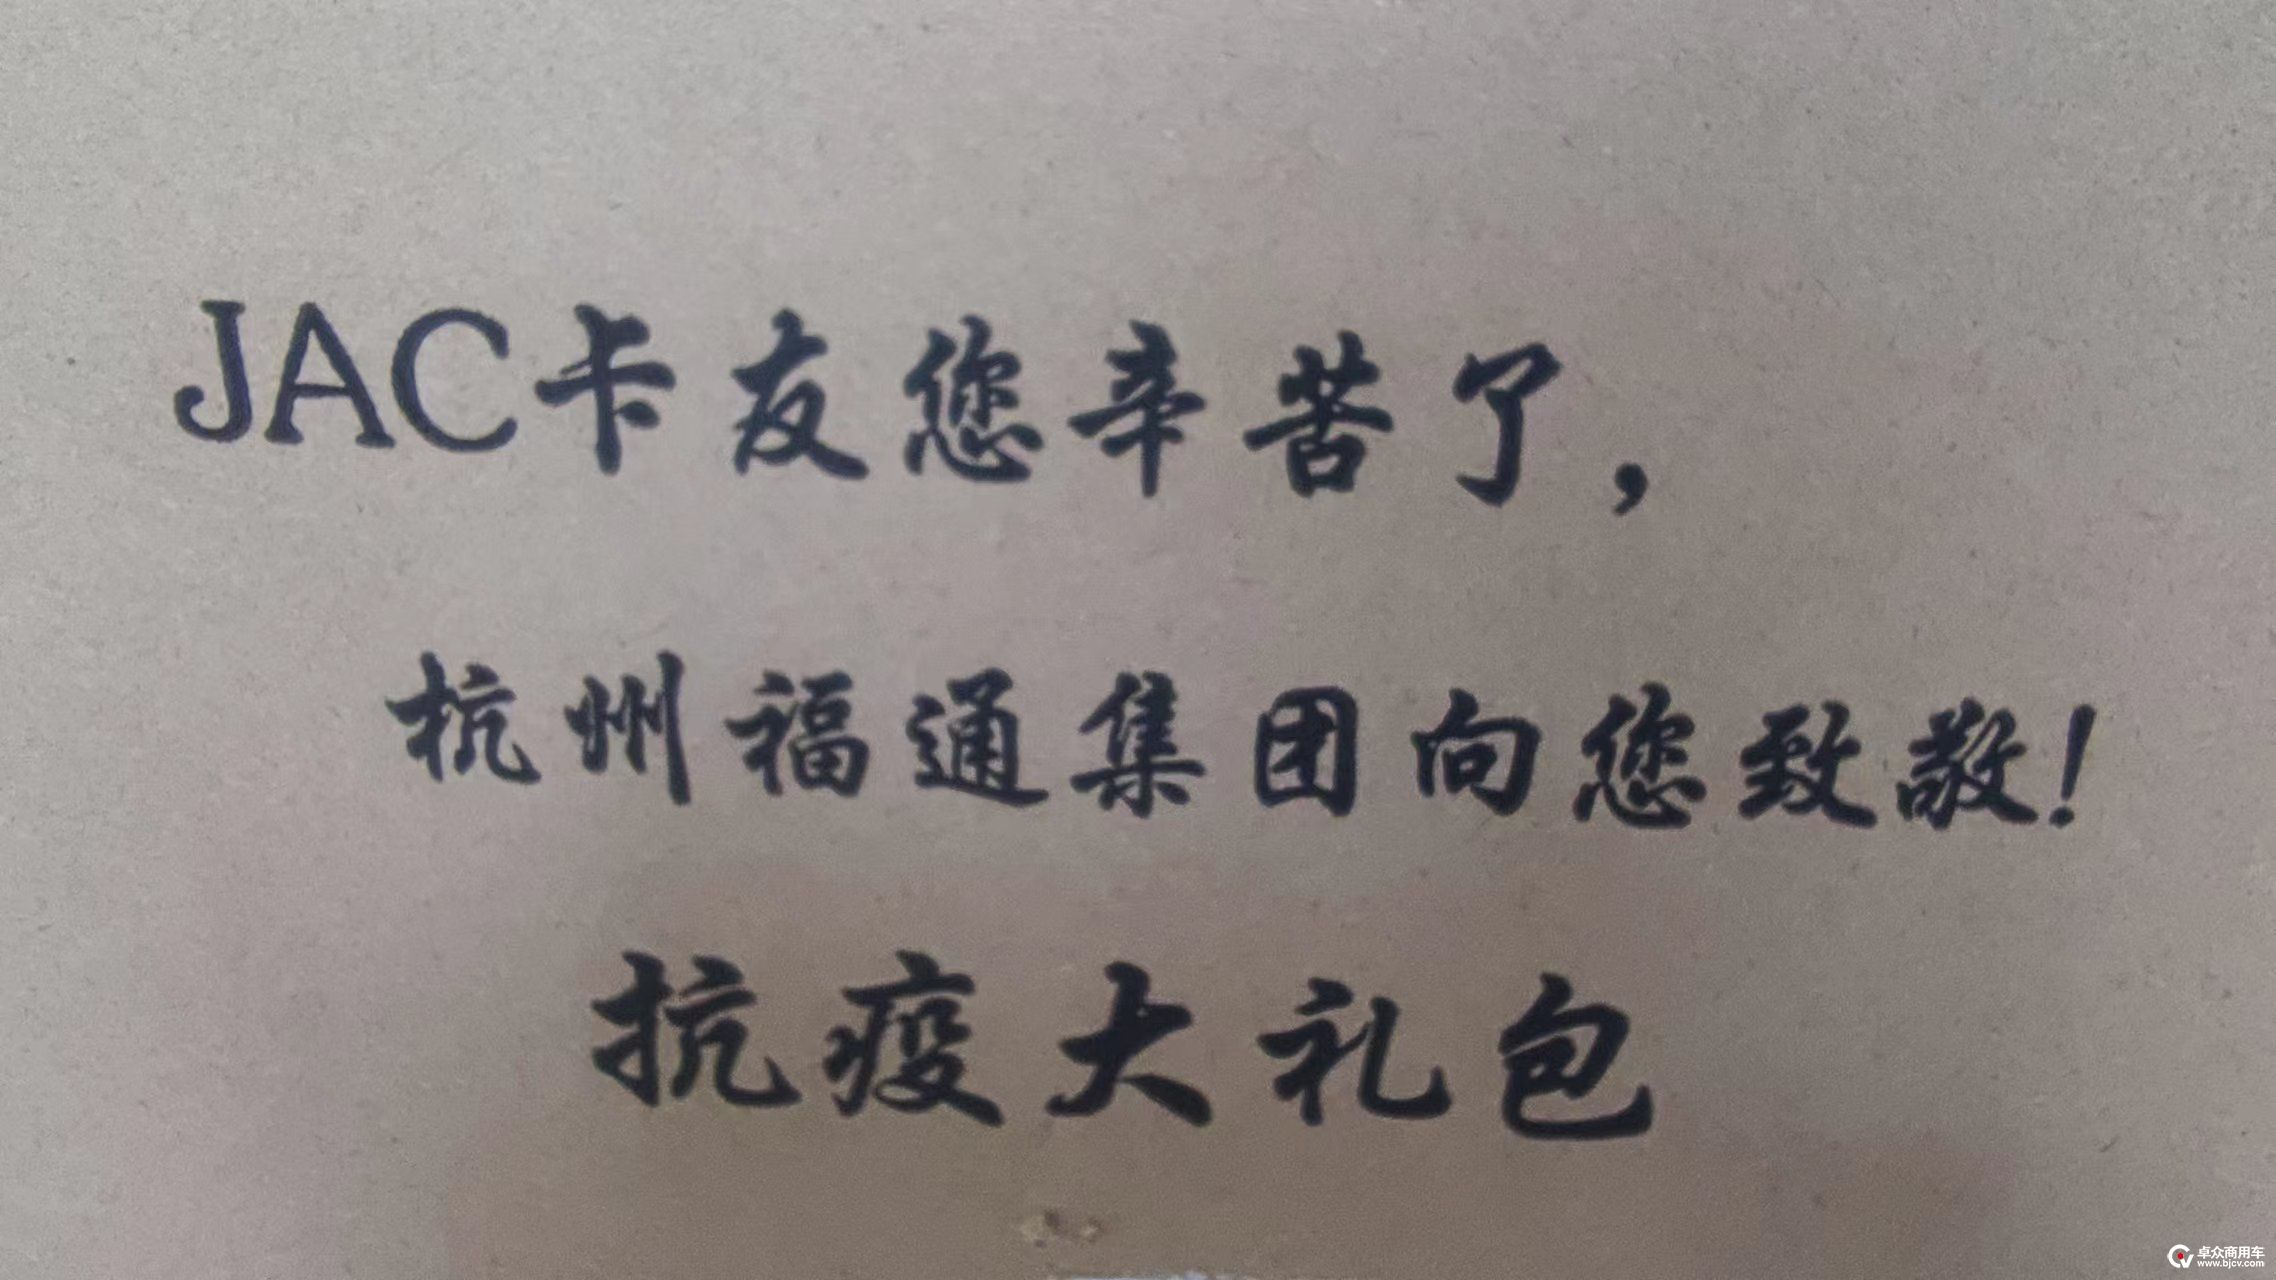 JAC卡友您辛苦了，
杭州福通集团向您致敬！
抗疫大礼包
卓众商用车
www.bjcv.com